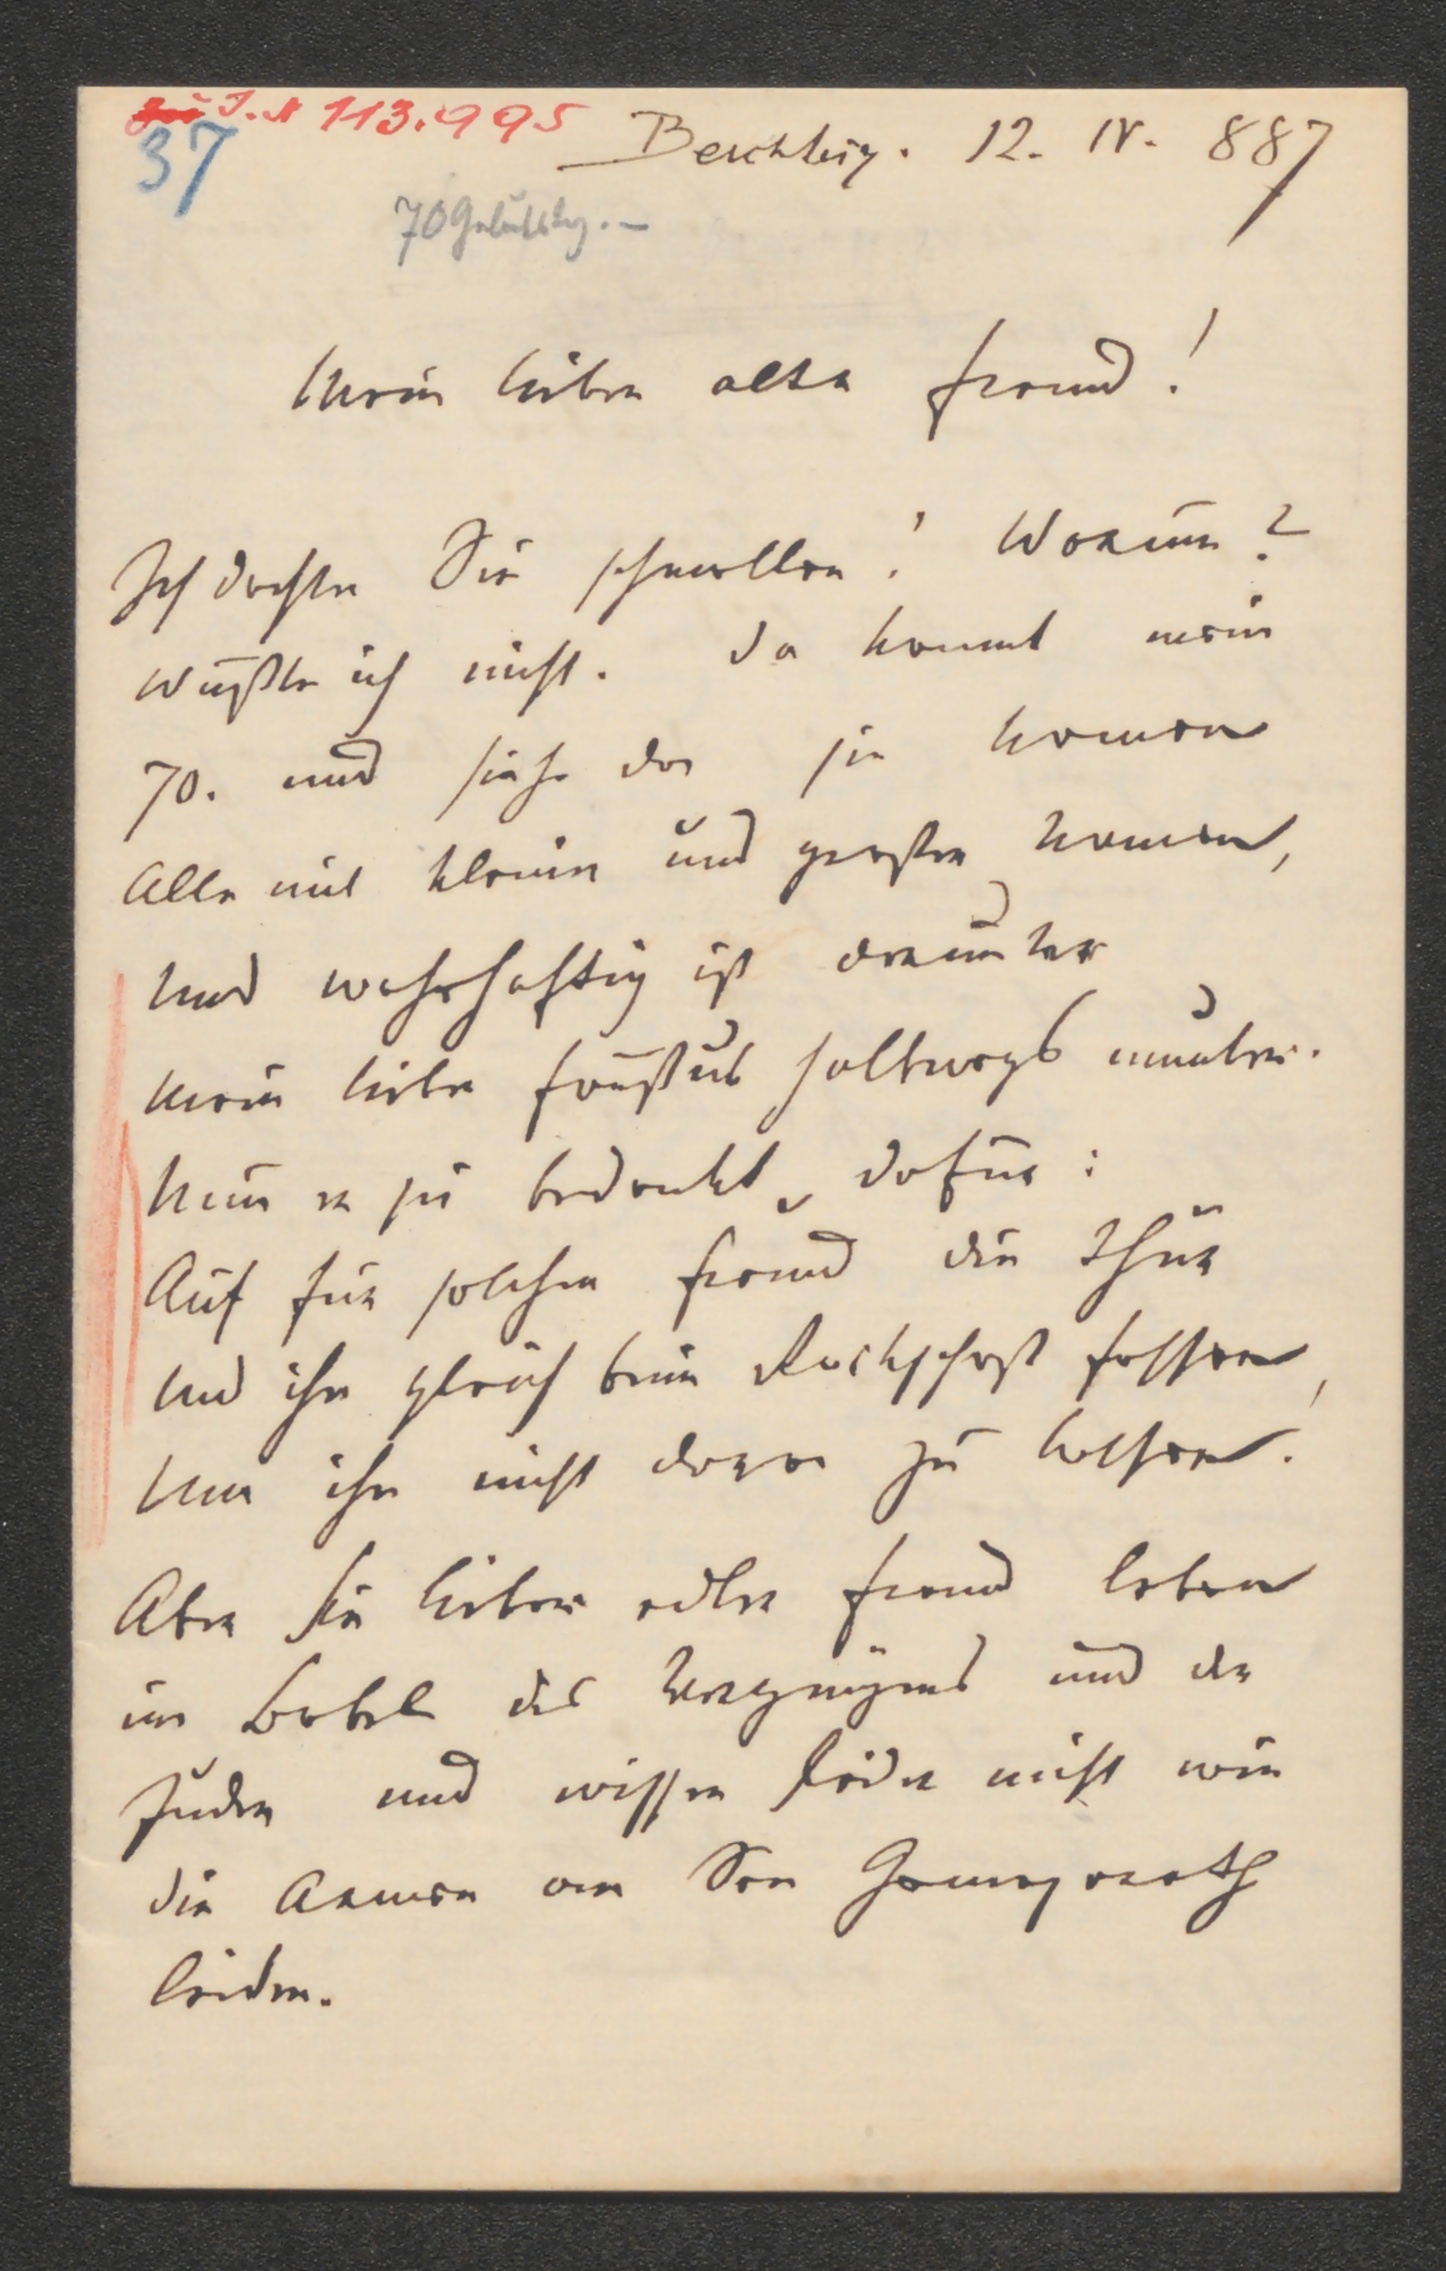 J. N 113.995
37
Berchtsg. 12. IV. 887
70 Geburtstag. —
Mein lieber alter Freund!
Ich dachte Sie schmollen! Warum?
Wußte ich nicht. Da kommt mein
70. und siehe da sie kommen
Alle mit kleinen und großen Namen,
Und wahrhaftig ist darunter
Mein lieber Faustus halbwegs munter.
Nun er sei bedankt dafür:
Auf für solchen Freund die Thür
Und ihn gleich beim Rockschoß fassen,
Um ihn nicht davon zu lassen.
Aber Sie lieber edler Freund leben
im Babel des Vergnügens und der
Juden und wissen leider nicht wie
die Armen an See
leiden.